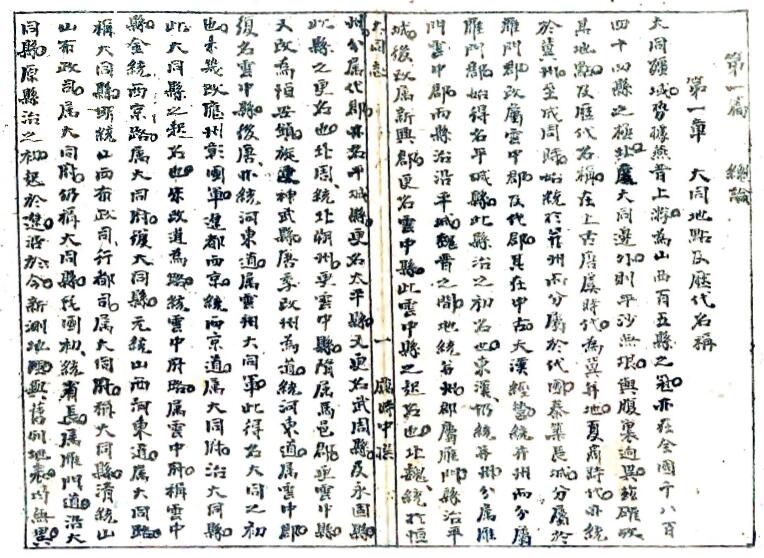 第一篇 總論
第一章 大同地點及歷代名稱
大同疆域勢據燕晉上游為山西百五縣之冠亦在全國千八百
四十四縣之極北處大同邊外則平沙無垠與腹裏迥異茲確攷
其地點及歷代名稱在上古唐虞時代為冀并地夏商時代亦統
於冀州至成周時始統於并州而分屬於代國秦築長城分屬於
雁門郡改屬雲中郡及代郡其在中古大漢經營統并州而分屬
雁門郡始得名平城縣此縣治之初名也東漢仍統并州分屬雁
門雲中郡而縣治沿平城魏晉之間地統名州郡屬雁門縣治平
城後改屬新興郡更名雲中縣此雲中縣之起名也北魏統於恒
大同志 一 應時中撰
州分屬代郡亦名平城縣更名太平縣又更名武周縣及永固縣
此縣之更名也北周統北朔州更雲中縣隋屬馬邑郡更雲中縣
又改為恒安鎮旋更神武縣唐季改州為道統河東道屬雲中郡
復名雲中縣後唐亦統河東道屬雲州大同軍此得名大同之初
也未幾改應州彰國軍遼都西京統西京道屬大同府治大同縣
此大同縣之起名也宋改道為路統雲中府路屬雲中府稱雲中
縣金統西京路屬大同府復大同縣元統山西河東道屬大同路
稱大同縣明統山西布政司行都司屬大同府稱大同縣清統山
山布政司屬大同府仍稱大同縣民國初統省長屬雁門道沿大
同縣原縣治之初起於遼沿於今新測地圖與舊例地表均無異